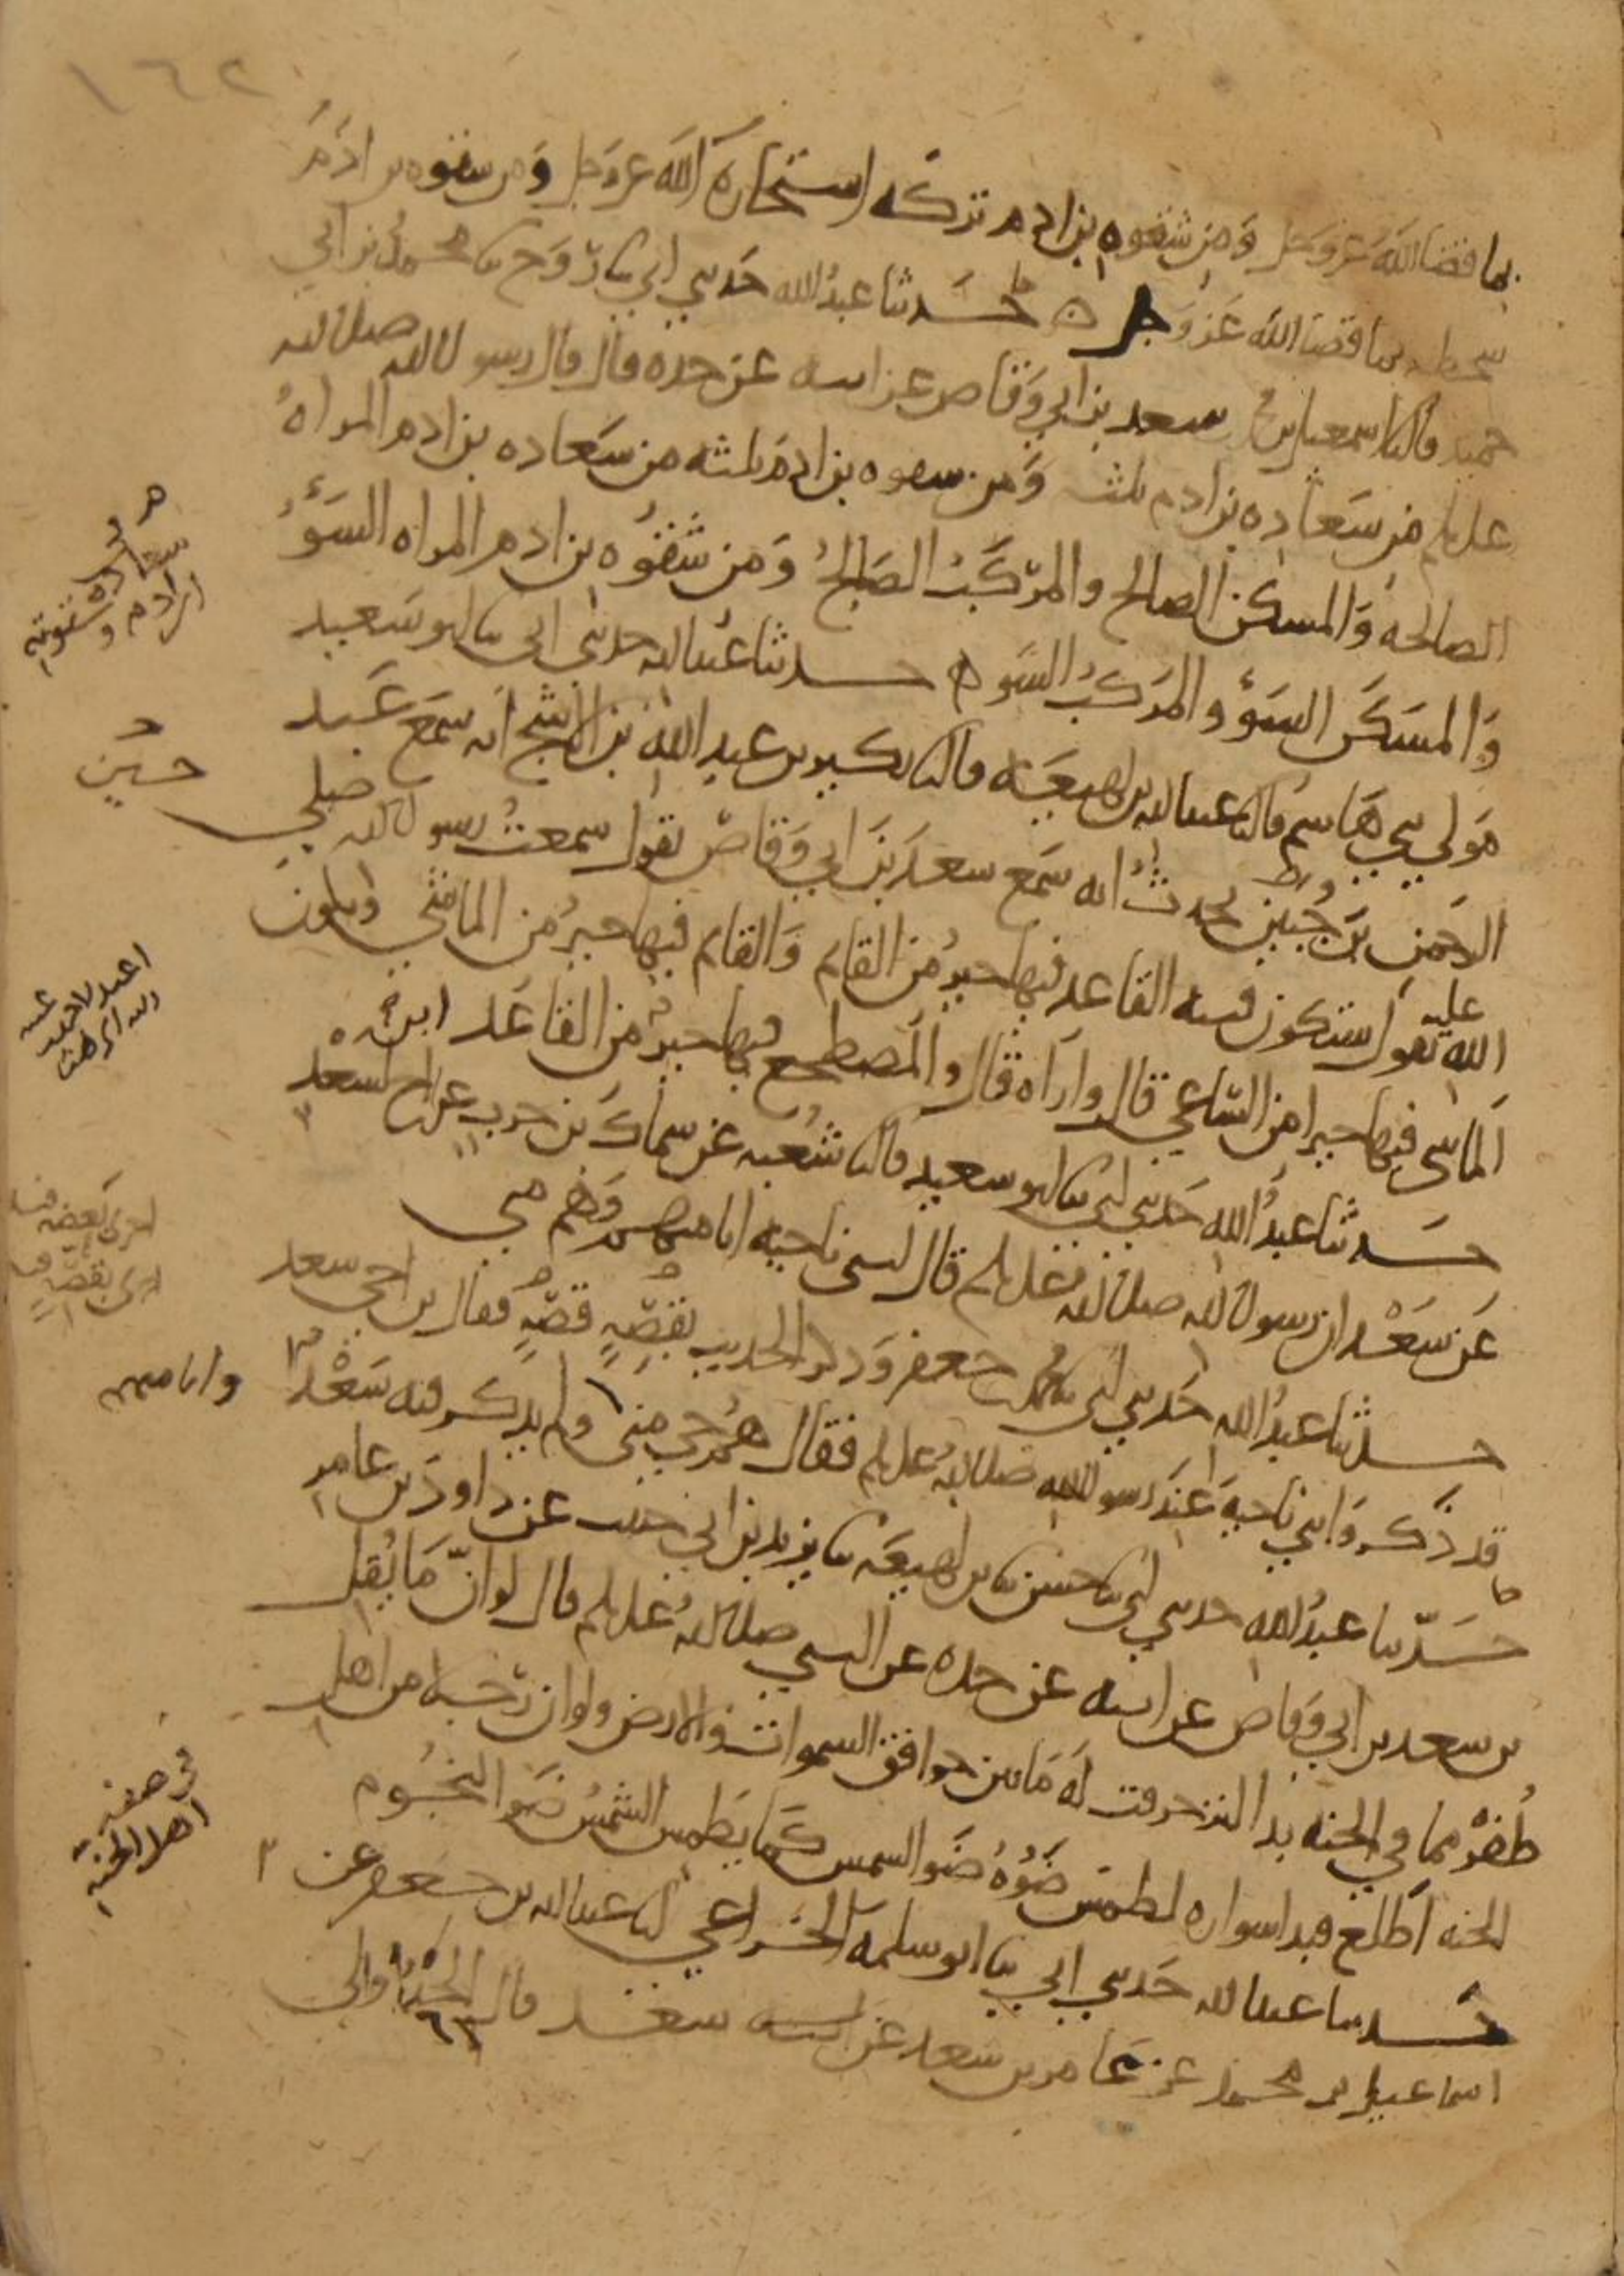 ١٦٢
بما قضا الله عز وجل ومن شقوه بن ادم تركه استخاره الله عز وجل ومن شقوه بن ادم
سخطه بما قضا الله عز وجل ه حدثنا عبد الله حدثني ابي ثنا روح ثنا محمد بن ابي
حميد قال ثنا اسمعيل بن محمد بن سعد بن ابي وقاص عن ابيه عن جده قال قال رسول الله صلى الله
عليه وسلم من سعاده بن ادم ثلثه ومن شقوه بن ادم ثلثه من سعاده بن ادم المراه
الصالحه والمسكن الصالح والمركب الصالح ومن شقوه بن ادم المراه السوء
والمسكن السوء والمركب السوء ه حدثنا عبد الله حدثني ابي ثنا ابو سعيد
مولى بني هاشم قال ثنا عبد الله بن لهيعه قال ثنا بكير بن عبد الله بن الاشج انه سمع عبد
الرحمن بن حسين يحدث انه سمع سعد بن ابي وقاص يقول سمعت رسول الله صلى
الله عليه يقول ستكون فتنه القاعد فيها خير من القائم والقائم فيها خير من الماشي ويكون
الماشي فيها خيرا من الساعي قال واراه قال والمضطجع فيها خير من القاعد
حدثنا عبد الله حدثني ابي ثنا ابو سعيد قال ثنا شعبه عن سماك بن حرب عن ابن اخ لسعد
عن سعد ان رسول الله صلى الله عليه وسلم قال لبني ناجيه انا منهم وهم مني
حدثنا عبد الله حدثني ابي ثنا محمد بن جعفر وذكر الحديث بقصه قصه فقال بن اخي سعد
قد ذكروا بني ناجيه عند رسول الله صلى الله عليه وسلم فقال هم حي مني ولم يذكر فيه سعد
حدثنا عبد الله حدثني ابي ثنا حسن ثنا بن لهيعه ثنا يزيد بن ابي حبيب عن داود بن عامر
بن سعد بن ابي وقاص عن ابيه عن جده عن النبي صلى الله عليه وسلم قال لو ان ما يقل
ظفر مما في الجنه بدا لتزخرفت له ما بين خوافق السموات والارض ولو ان رجلا من اهل
الجنه اطلع فبدا سواره لطمس ضوه ضو الشمس كما يطمس الشمس ضو النجوم
حدثنا عبد الله حدثني ابي ثنا ابو سلمه الخزاعي ثنا عبد الله بن جعفر عن
اسماعيل بن محمد عن عامر بن سعد عن ابيه سعد قال الحدوا لي
سعاده ابن ادم وشقوته
حسين
وانا منهم
في صفه
اهل الجنه